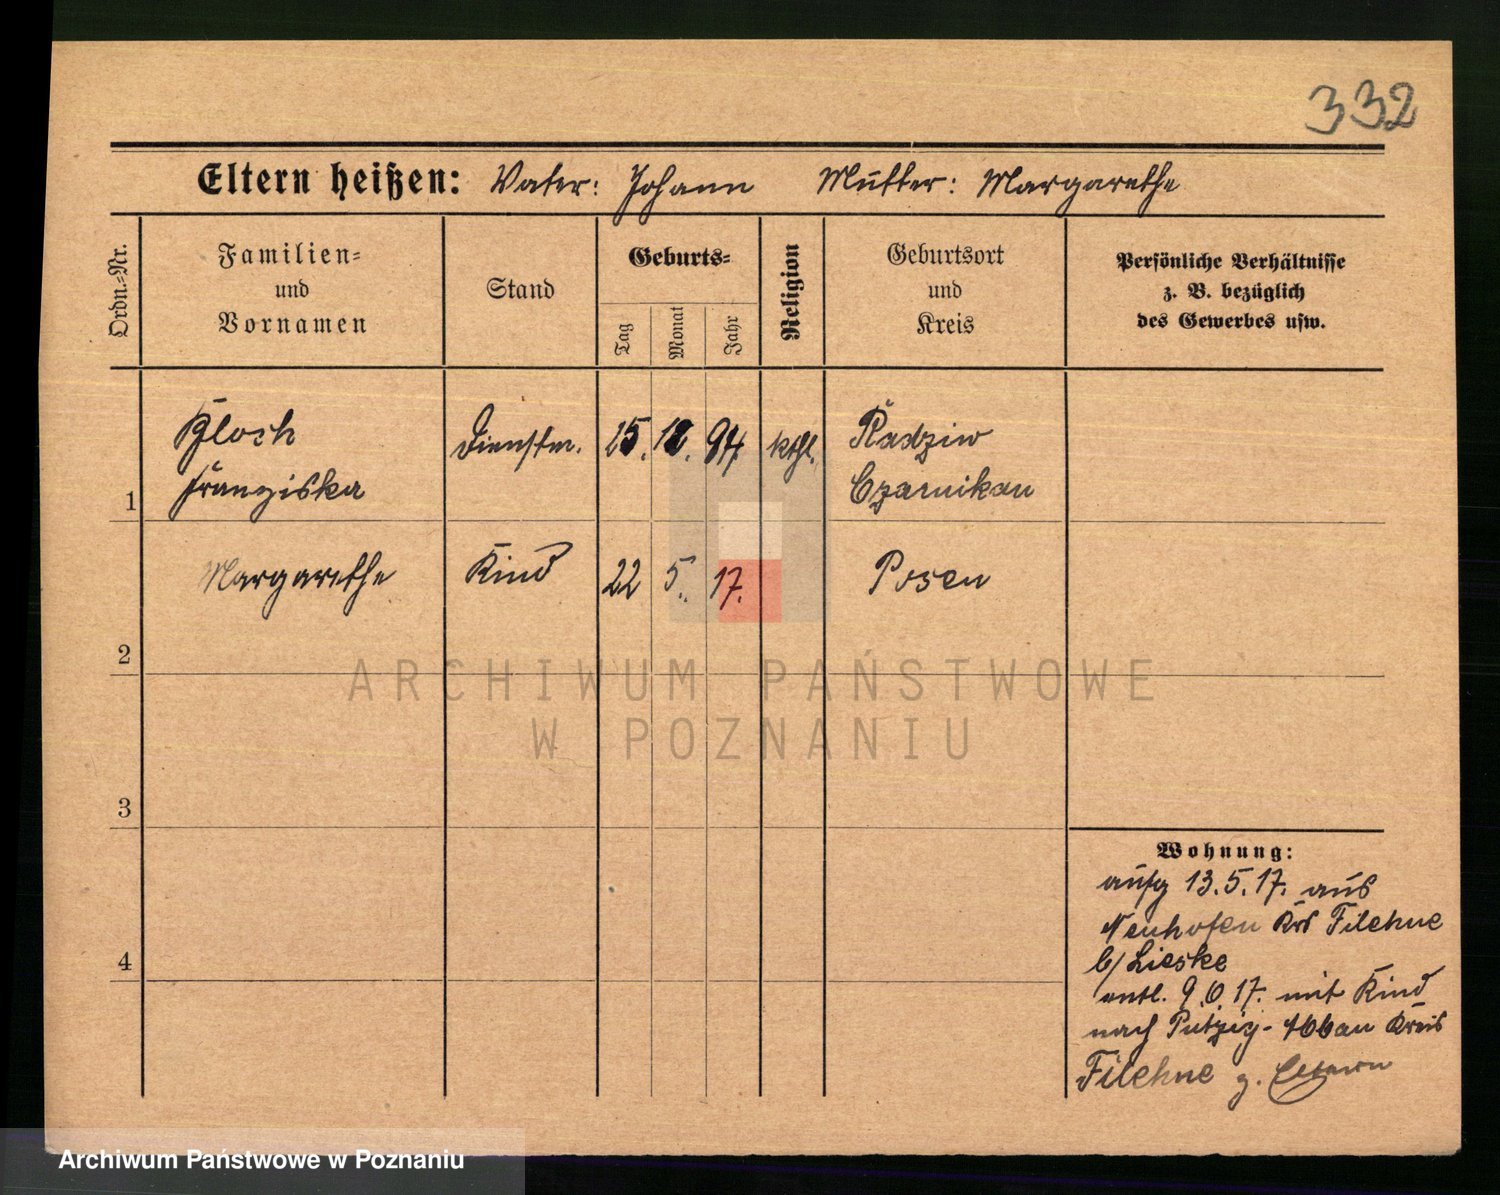 332
Eltern heißen: Vater: Johann Mutter: Margarethe
Ordn.-Nr.
Familien-
und
Vornamen
Stand
Geburts-
Tag
Monat
Jahr
Religion
Geburtsort
und
Kreis
Persönliche Verhältnisse
z. B. bezüglich
des Gewerbes usw.
1
Kloch
Franziska
Dienstm.
25. 12. 94
kthl.
Radziw
Czarnikau
2
Margarethe
Kind
22 5. 17.
Posen
3
4
Wohnung:
aufg 13.5.17. aus
Neuhofen Krs Filehne
b/ Lieske
entl. 9.6.17. mit Kind
nach Putzig-Abbau Kreis
Filehne z. Eltern
ARCHIWUM PAŃSTWOWE
W POZNANIU
Archiwum Państwowe w Poznaniu